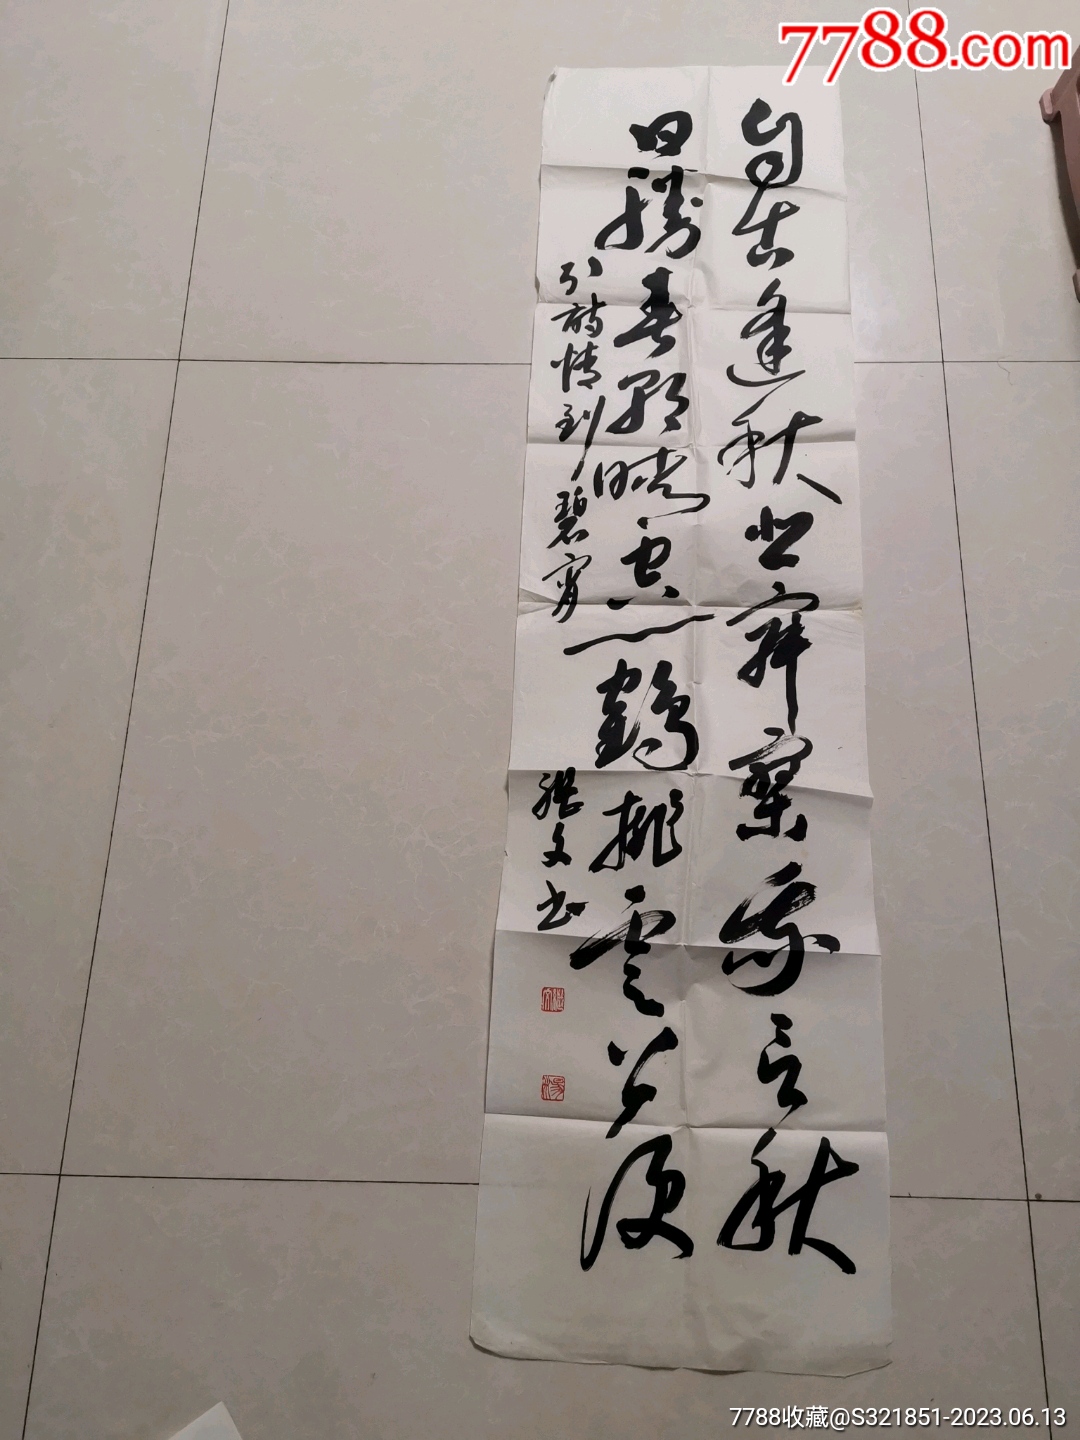 7788.com
自古逢秋悲寂寥我言秋
日勝春朝晴空一鶴排雲上便
引詩情到碧宵
張文书
7788收藏@S321851-2023.06.13